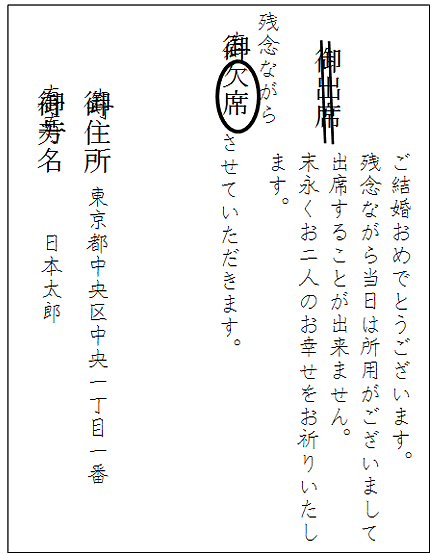 ご結婚おめでとうございます。
残念ながら当日は所用がございまして
出席することが出来ません。
末永くお二人のお幸せをお祈りいたし
ます。
御出席
残念ながら
御欠席させていただきます。
御住所 東京都中央区中央一丁目一番
御芳名 日本太郎